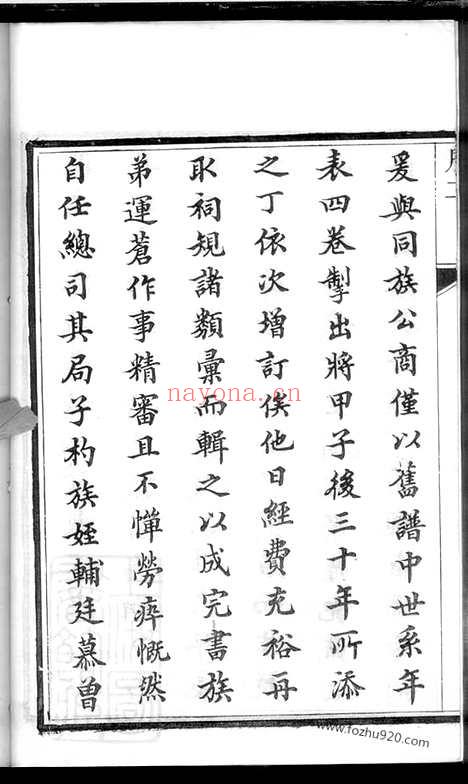 爰與同族公商僅以舊譜中世系年
表四卷掣出將甲子後三十年所添
之丁依次增訂俟他日經費充裕再
取祠規諸類彙而輯之以成完書族
弟運蒼作事精審且不憚勞瘁慨然
自任總司其局子杓族姪輔廷慕曾
nayona.cn
www.fozhu920.com